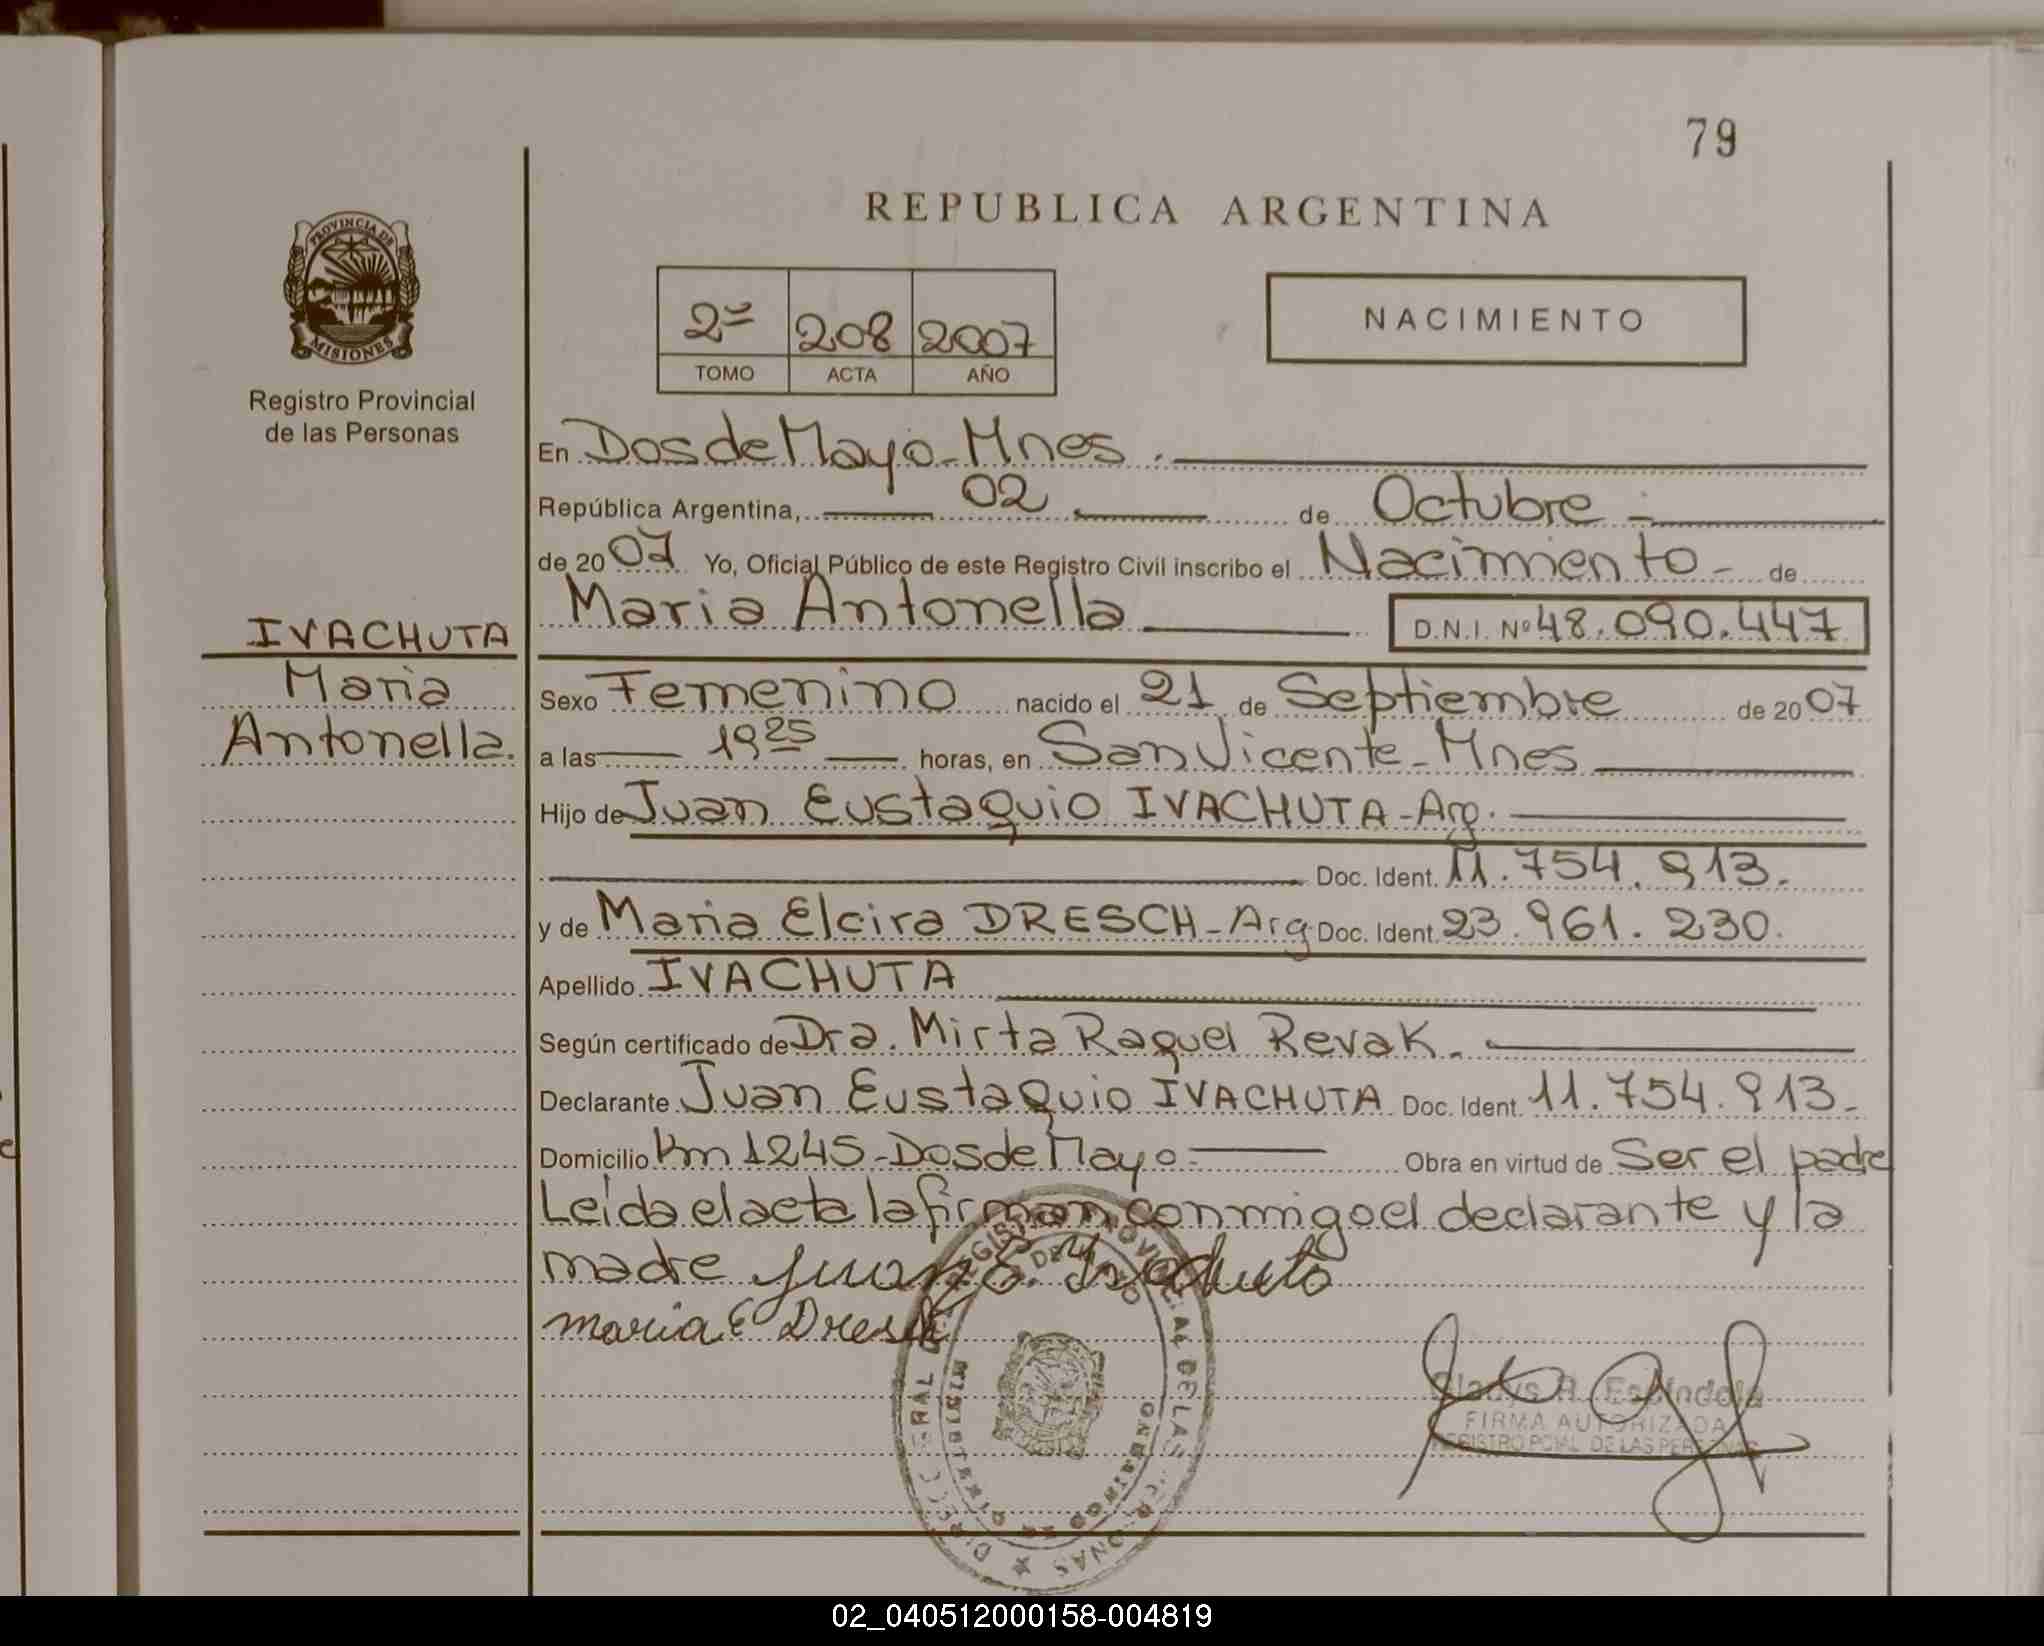 79
REPUBLICA ARGENTINA
PROVINCIA DE
MISIONES
Registro Provincial
de las Personas
2º 208 2007
TOMO ACTA AÑO
NACIMIENTO
En Dos de Mayo - Mnes.
República Argentina, 02 de Octubre
de 2007 Yo, Oficial Público de este Registro Civil inscribo el Nacimiento - de
Maria Antonella D.N.I. Nº 48.090.447
IVACHUTA
Maria
Antonella.
Sexo Femenino nacido el 21 de Septiembre de 2007
a las 19 25 horas, en San Vicente - Mnes
Hijo de Juan Eustaquio IVACHUTA - Arg.
Doc. Ident. 11.754.913.
y de Maria Elcira DRESCH - Arg Doc. Ident. 23.961.230.
Apellido IVACHUTA
Según certificado de Dra. Mirta Raquel Revak.
Declarante Juan Eustaquio IVACHUTA Doc. Ident. 11.754.913.
Domicilio Km 1245 - Dos de Mayo - Obra en virtud de Ser el padre
Leida el acta la firman conmigo el declarante y la
madre Juan E. Ivachuta
maria E Dresch
Gladys R. Espíndola
FIRMA AUTORIZADA
REGISTRO PCIAL. DE LAS PERSONAS
02_040512000158-004819